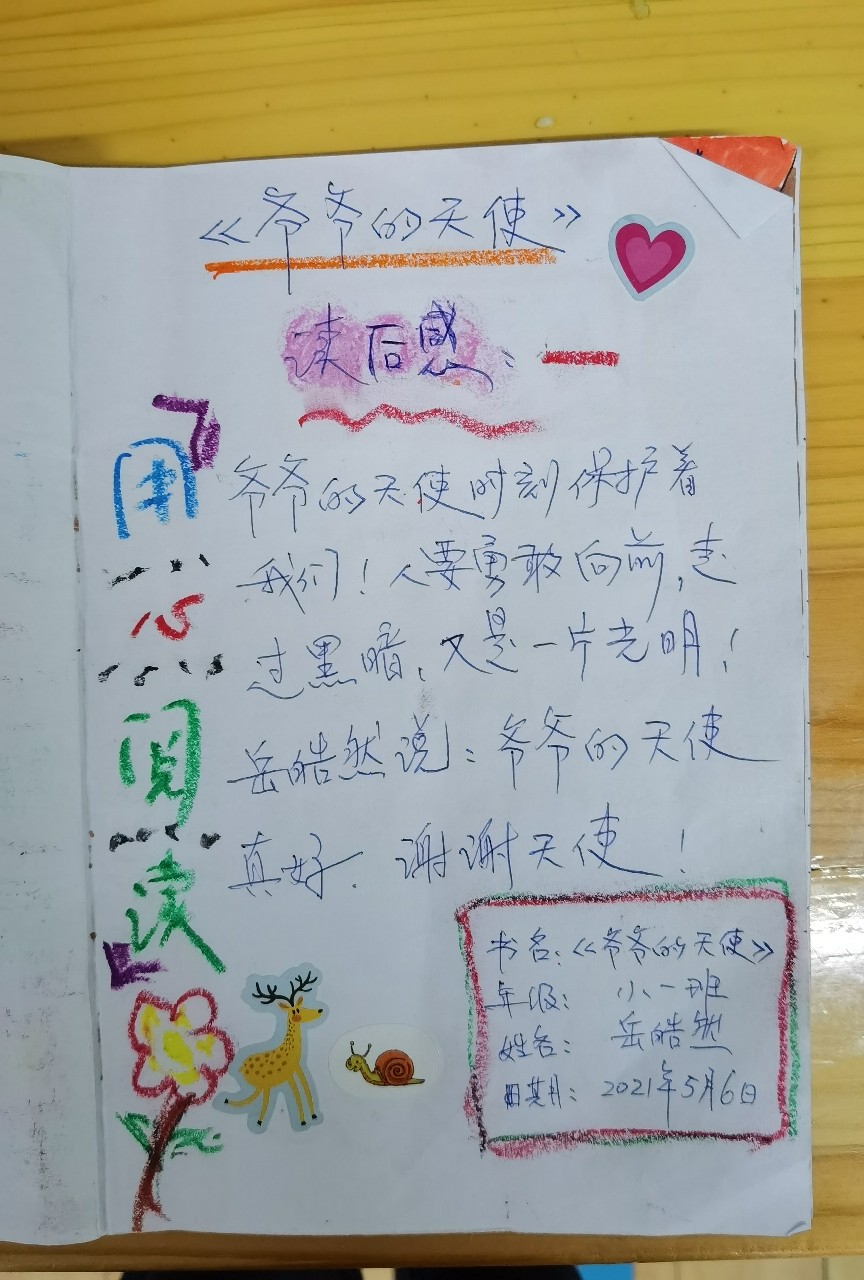 《爷爷的天使》
读后感：
「用心阅读」
爷爷的天使时刻保护着
我们！人要勇敢向前，走
过黑暗，又是一片光明！
岳皓然说：爷爷的天使
真好．谢谢天使！
书名：《爷爷的天使》
年级： 小一班
姓名： 岳皓然
日期： 2021年5月6日